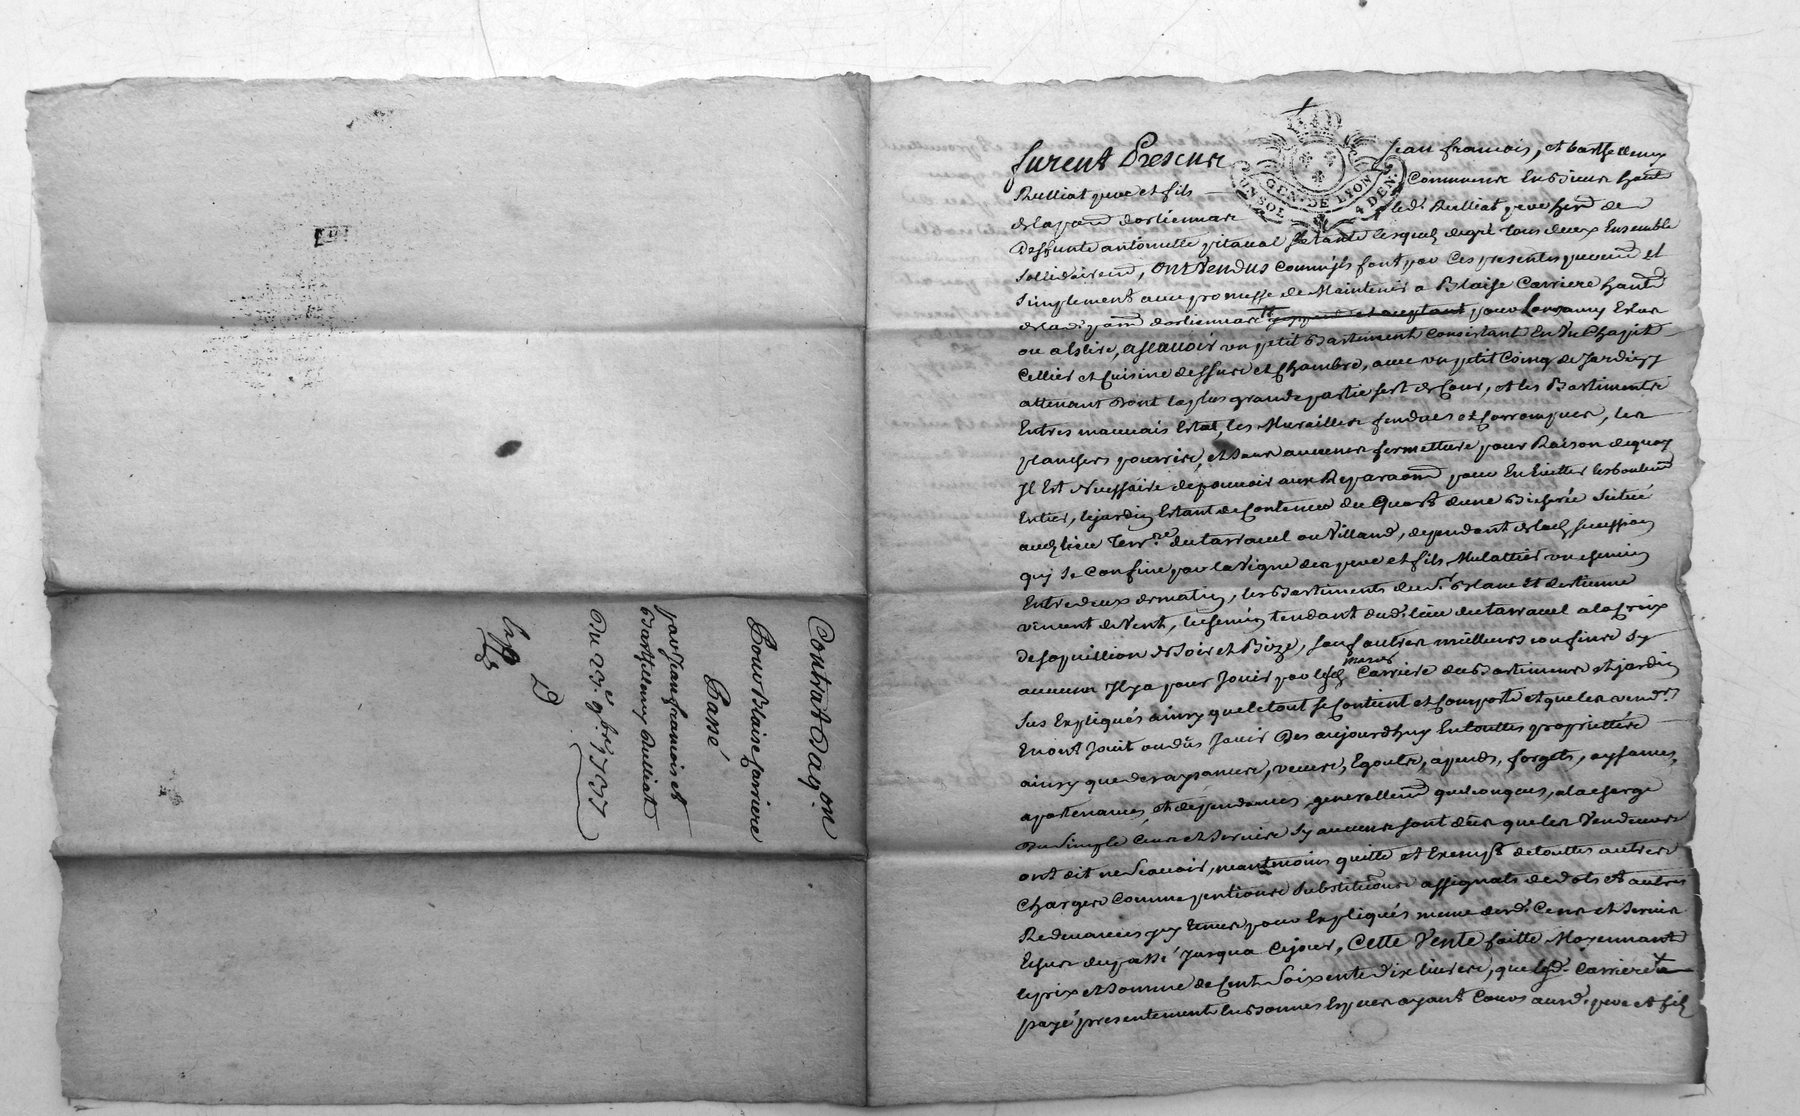 Contrat d'aq.on
Pour Blaise Carriere
Passé
par Jean francois et
Barthellemy Rulliat
Du 23.e 9bre 1737
GEN. DE LYON
UN SOL 4 DEN.
furent Presens Jean francois, et barthellemy
Rulliat pere et fils
de la parr d'orliennas led. Rulliat pere
Deffunte antoinette pitaval lesquels de gré tous deux Ensemble
sollidairemt, Ont Vendus comm'jls font par Ces presentes purement et
simplement avec promesse de Maintenir a Blaise Carriere habt
de lad. parr d'orliennas et acceptant pour
ou eslire, asscauoir un petit Bastiment Consistant En Un Chapit
Cellier et Cuisine dessus et Chambre, auec un petit Coing de Jardin
attenant Dont la plus grande partie sert de Cour, et les Bastiments
En tres mauuais Estat, les Murailles fendues et Corrompues, les
planchers pourris, et sans aucunes fermetture pour Raison de quoy
Jl Est Necessaire de pouruoir aux Reparaons pour En Euitter
Entier, le jardin Estant de Contenue du Quart d'une Bicherée Situé
aud. lieu Terr.re du tarrauel ou Villand, dependant de lad. succession
quj Se Confine par la Vigne des pere et fils Mulattier un chemin
Entre deux de matin, les Bastiments du S.r Blanc Et d'estienne
vincent de Vent, le chemin tendant dud. lieu du tarrauel a la Croix
de soir et Bize, sauf autres meilleurs confins sy
aucuns Jl y a pour Jouir par led. Carriere des Bastiments et jardin
sus Expliqués ainsy que le tout se Contient et Comporte et que les vendrs
En ont Jouit ou dus Jouir Des aujourdhuy En touttes proprietté
ainsy que de ses aysances, veues, Egouts, apends, forgets, aysances,
apartenances, et dépendances, generallemt quelconques, a la charge
Du Simple Cens et Seruis sy aucuns sont deus que les Vendeurs
ont dit ne Scauoir, neantmoins quitte et Exempt de touttes autres
Charges Comme pentions substitutions assignats de dots et autres
Redeuances expliqués meme desd. Cens et Seruis
du passé Jusqua Cejour, Cette Vente faitte Moyennant
le prix et Somme de Cent Soixente dix liures, que led. Carriere a
payé presentement En Bonnes Especes ayant Cours auxd. pere et fils